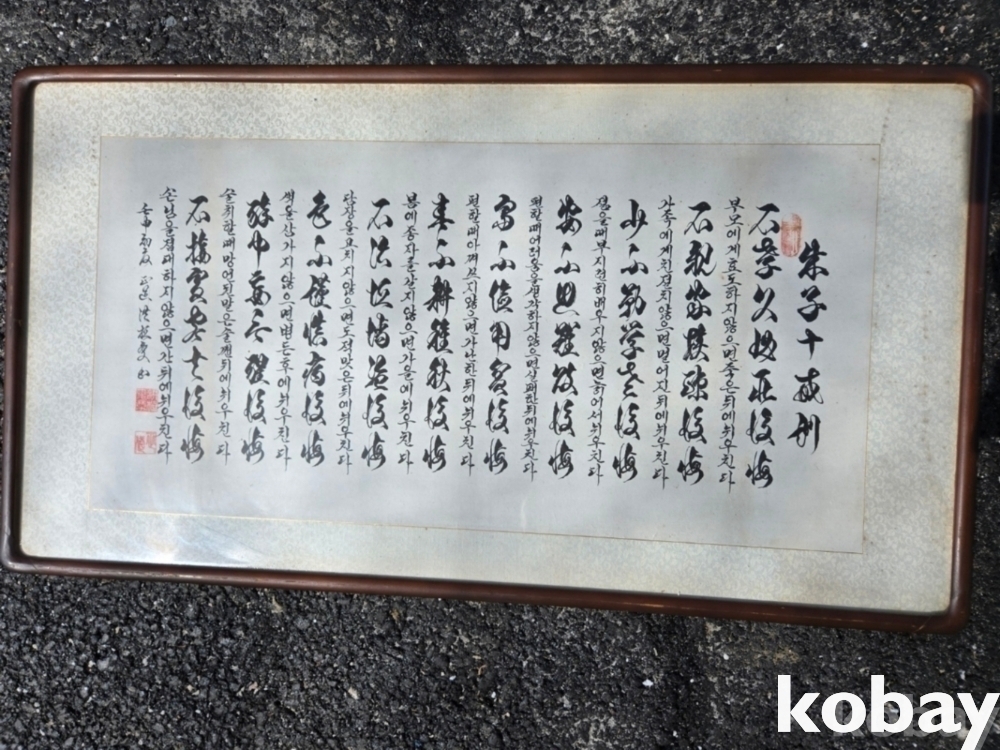 朱子十戒訓
不孝父母死後悔
부모에게효도하지않으면죽은뒤에뉘우친다
不親家族疎後悔
가족에게친절치않으면멀어진뒤에뉘우친다
少不勤學老後悔
젊을때부지런히배우지않으면늙어서뉘우친다
安不思難敗後悔
편할때어려움을생각하지않으면실패한뒤에뉘우친다
富不儉用貧後悔
편할때아껴쓰지않으면가난한뒤에뉘우친다
春不耕種秋後悔
봄에종자를갈지않으면가을에뉘우친다
不治垣墻盜後悔
담장을고치지않으면도적맞은뒤에뉘우친다
色不謹愼病後悔
색을삼가지않으면병든후에뉘우친다
醉中妄言醒後悔
술취한때망언된말은술깬뒤에뉘우친다
不接賓客去後悔
손님을접대하지않으면간뒤에뉘우친다
壬申初秋
kobay